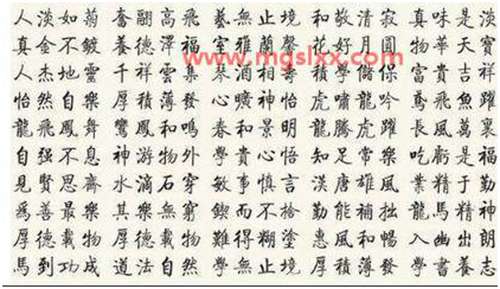 人淡如菊 奮翮高飛 藝無止境 和敬清寂 真味是淡
真金不鍍 養德澤福 室雅蘭馨 花好月圓 物華天寶
www.mgslxx.com
人杰地靈 千祥雲集 琴酒相壽 積學儲 富貴吉祥
怡然自樂 厚積薄發 心曠神怡 虎嘯龍吟 鳶飛魚躍
龍飛鳳舞 鸞鳳和鳴 春和景明 龍騰虎躍 長風萬裏
自强不息 神游物外 和貴心悟 知足常樂 吃虧是福
見賢思齊 水滴石穿 敏事慎言 漢唐雄風 業精于勤
爲善最樂 其樂無窮 鍥而不捨 勤能補拙 龍馬精神
厚德載物 厚德載物 難得糊塗 惠風和暢 入幽出朗
馬到功成 道法自然 學無止境 厚積薄發 學書養志